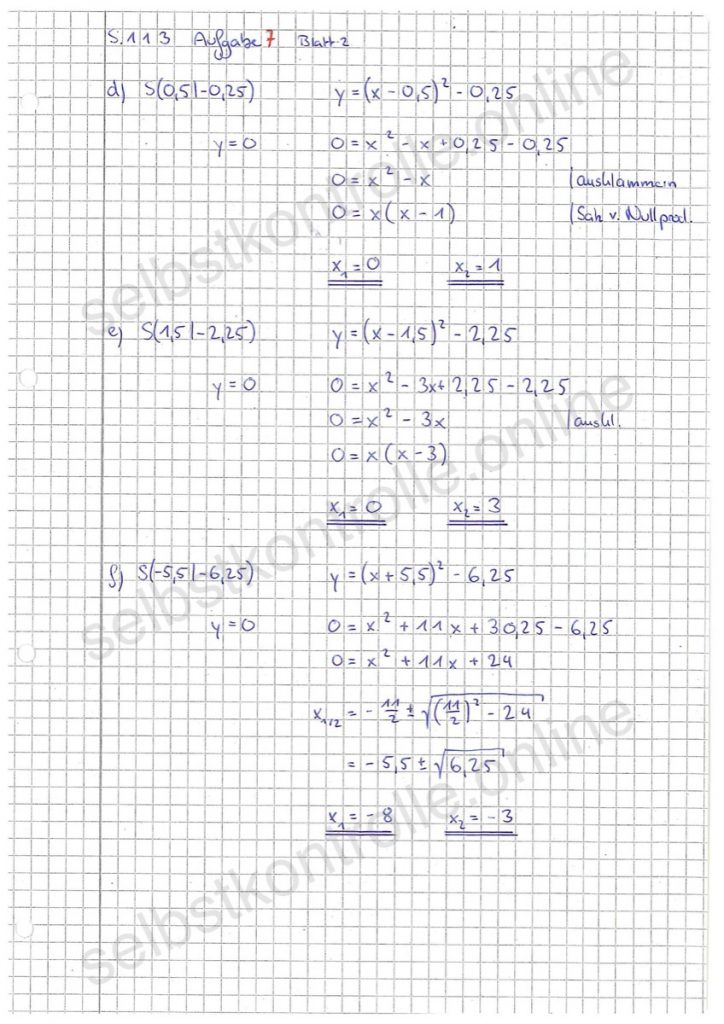 S. 113 Aufgabe 7 Blatt 2
d) S(0,5|-0,25) y = (x - 0,5)² - 0,25
y = 0 0 = x² - x + 0,25 - 0,25
0 = x² - x |ausklammern
0 = x(x - 1) |Satz v. Nullprod.
x₁ = 0 x₂ = 1
e) S(1,5|-2,25) y = (x - 1,5)² - 2,25
y = 0 0 = x² - 3x + 2,25 - 2,25
0 = x² - 3x |auskl.
0 = x(x - 3)
x₁ = 0 x₂ = 3
f) S(-5,5|-6,25) y = (x + 5,5)² - 6,25
y = 0 0 = x² + 11x + 30,25 - 6,25
0 = x² + 11x + 24
x₁/₂ = - 11/2 ± √((11/2)² - 24)
= - 5,5 ± √6,25
x₁ = - 8 x₂ = - 3
selbstkontrolle.online
selbstkontrolle.online
selbstkontrolle.online